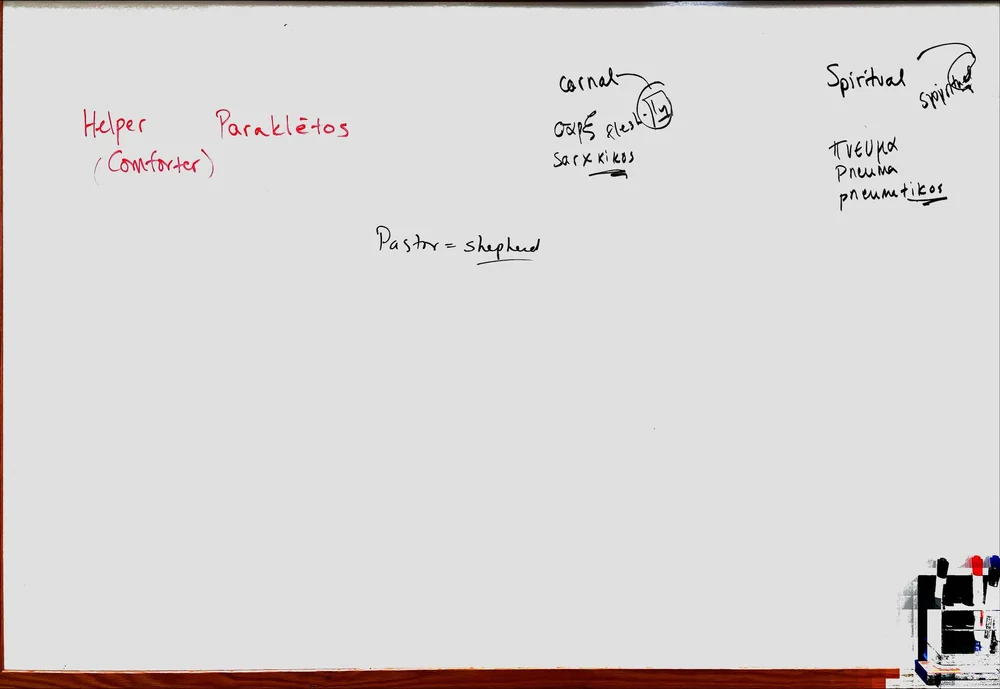 Helper Paraklētos
(Comforter)
carnal
σαρξ flesh-ly
sarxkikos
Spiritual
πνευμα
pneuma
pneumatikos
Pastor = shepherd